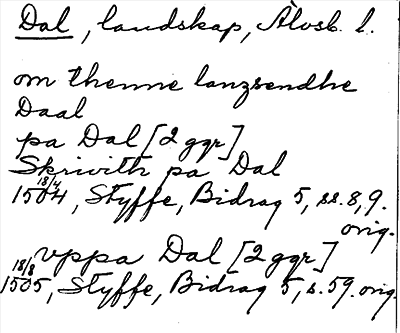 Dal, landskap, Älvsb. l.
om thenne lanzsendhe
Daal
pa Dal [2 ggr]
Skrivith pa Dal
18/4 1504, Styffe, Bidrag 5, ss. 8, 9.
orig.
vppa Dal [2 ggr]
18/8 1505, Styffe, Bidrag 5, s. 59. orig.